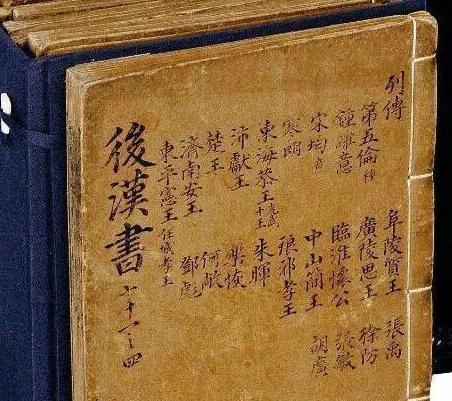 列傳
第五倫 種 阜陵質王 張禹
鍾離意 廣陵思王 徐防
宋均 意 臨淮懷公 張敏
寒朗 中山簡王 胡廣
東海恭王 光武十王 琅邪孝王
沛獻王 朱暉
楚王 樂恢
濟南安王 何敞
東平憲王 任城孝王 鄧彪
後漢書 十一之四